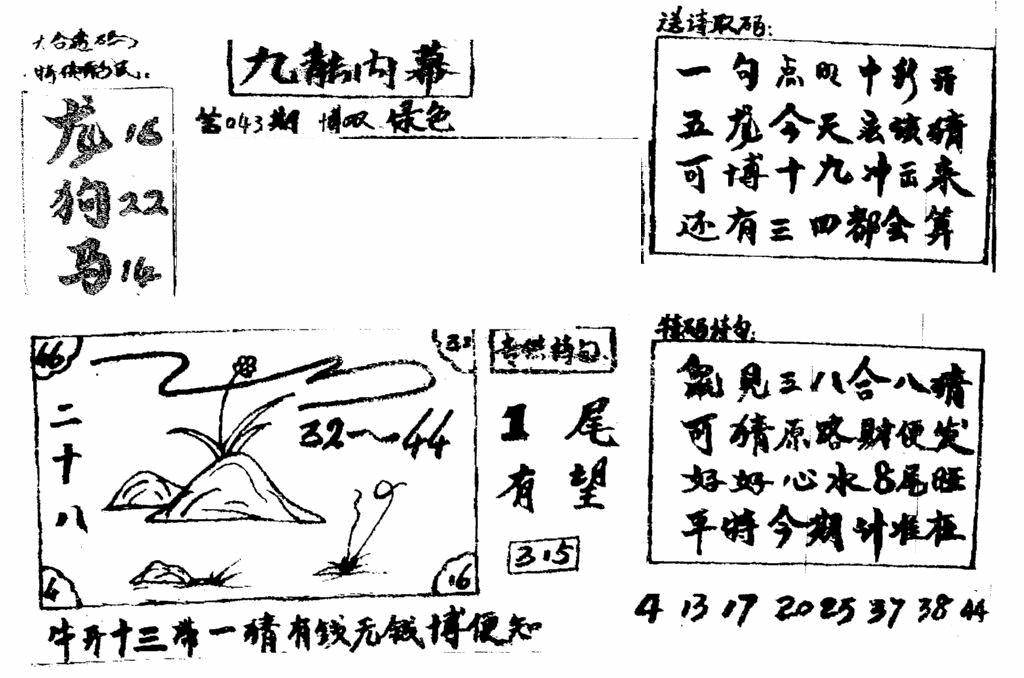 龙 16
狗 22
马 14
九龙内幕
第043期 博双 绿色
送诗取码:
一句点明中彩开
五龙今天应该猜
可博十九冲出来
还有三四都会算
46
32
二十八
32～44
4
16
牛开十三带一猜有钱无钱博便知
1尾
有望
3.15
特码诗句:
鼠見三八合八猜
可猜原路财便发
好好心水8尾旺
平特今期计准在
4 13 17 20 25 37 38 44